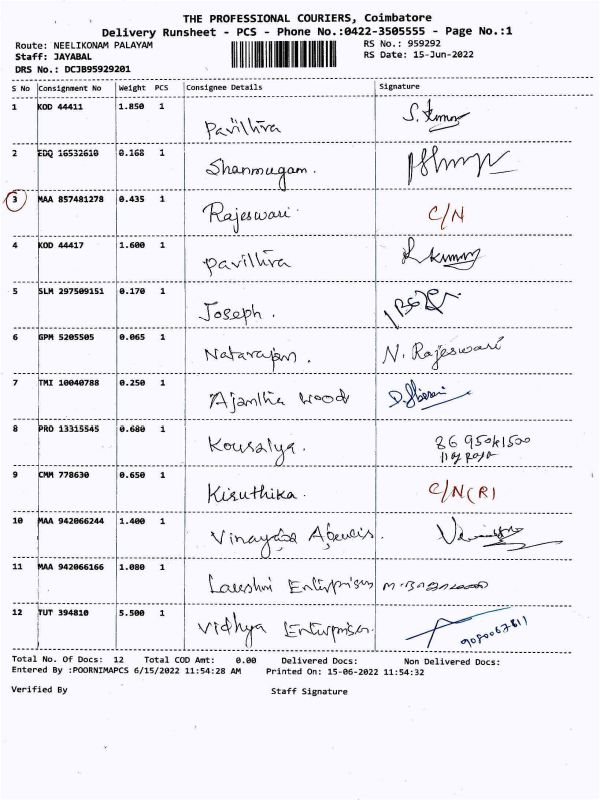 THE PROFESSIONAL COURIERS, Coimbatore
Delivery Runsheet - PCS - Phone No.:0422-3505555 - Page No.:1
Route: NEELIKONAM PALAYAM
RS No.: 959292
Staff: JAYABAL
RS Date: 15-Jun-2022
DRS No.: DCJB95929201
S No Consignment No Weight PCS Consignee Details Signature
1 KOD 44411 1.850 1
Pavithra S. Kumar
2 EDQ 16532610 0.168 1
Shanmugam.
3 MAA 857481278 0.435 1
Rajeswari C/N
4 KOD 44417 1.600 1
Pavithra
5 SLM 297509151 0.170 1
Joseph.
6 GPM 5205505 0.065 1
Natarajan. N. Rajeswari
7 TMI 10040788 0.250 1
Ajantha wood
8 PRO 13315545 0.680 1
Kousalya.
9 CMM 778630 0.650 1
Kiruthika. C/N(R)
10 MAA 942066244 1.400 1
Vinayaga Agencies.
11 MAA 942066166 1.080 1
Lakshmi Enterprises
12 TUT 394810 5.500 1
Vidhya Enterprises.
Total No. Of Docs: 12 Total COD Amt: 0.00 Delivered Docs: Non Delivered Docs:
Entered By :POORNIMAPCS 6/15/2022 11:54:28 AM Printed On: 15-06-2022 11:54:32
Verified By Staff Signature